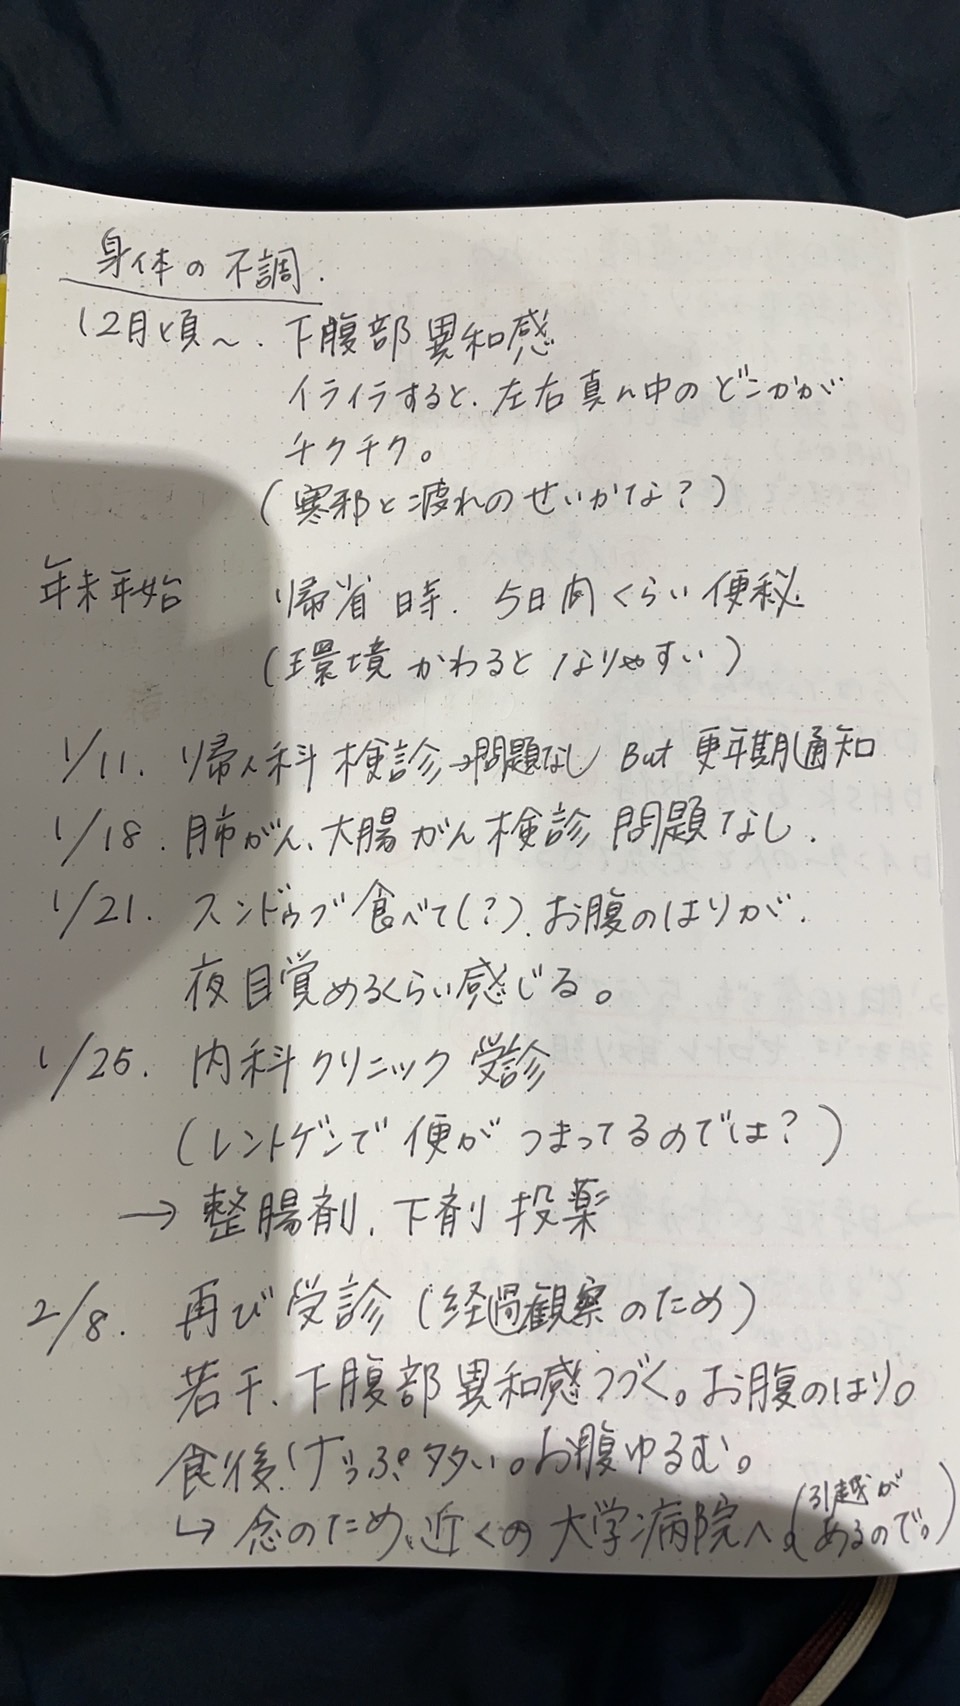 身体の不調.
12月頃〜. 下腹部異和感
イライラすると、左右真ん中のどこかが
チクチク。
(寒邪と疲れのせいかな?)
年末年始 帰省時. 5日間くらい便秘
(環境かわるとなりやすい)
1/11. 婦人科検診→問題なし But 更年期通知
1/18. 肺がん、大腸がん検診 問題なし.
1/21. スンドゥブ食べて(?). お腹のはりが.
夜目覚めるくらい感じる。
1/25. 内科クリニック受診
(レントゲンで便がつまってるのでは?)
→ 整腸剤、下剤投薬
2/8. 再び受診 (経過観察のため)
若干、下腹部異和感つづく。お腹のはり。
食後、げっぷ多い。お腹ゆるむ。
↳ 念のため、近くの大学病院へ。(引越が
あるので。)